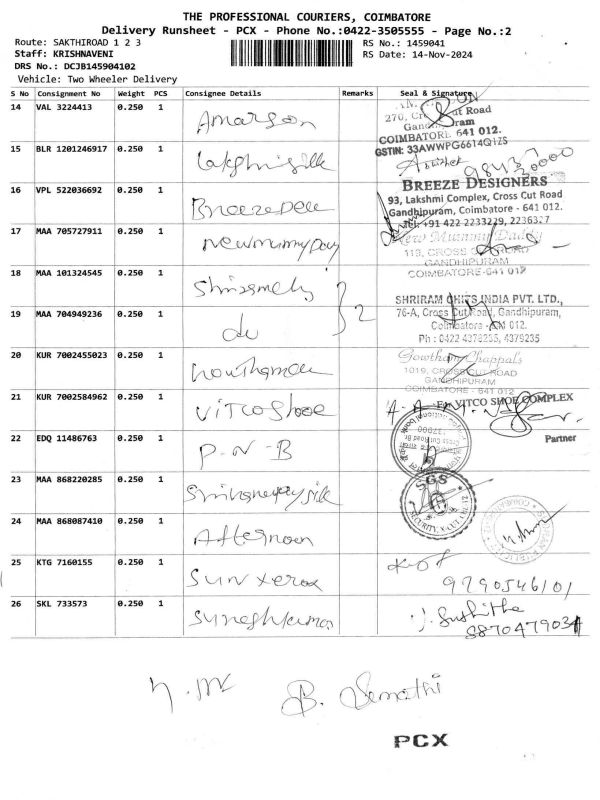 THE PROFESSIONAL COURIERS, COIMBATORE
Delivery Runsheet - PCX - Phone No.:0422-3505555 - Page No.:2
Route: SAKTHIROAD 1 2 3 RS No.: 1459041
Staff: KRISHNAVENI RS Date: 14-Nov-2024
DRS No.: DCJB145904102
Vehicle: Two Wheeler Delivery
S No Consignment No Weight PCS Consignee Details Remarks Seal & Signature
14 VAL 3224413 0.250 1 Amarson
270, Cross Cut Road
Gandhipuram
COIMBATORE 641 012.
GSTIN: 33AWWPG6614Q1Z5
15 BLR 1201246917 0.250 1
16 VPL 522036692 0.250 1
BREEZE DESIGNERS
93, Lakshmi Complex, Cross Cut Road
Gandhipuram, Coimbatore - 641 012.
Tel: +91 422 2233229, 2236327
17 MAA 705727911 0.250 1
New Mummy Daddy
GANDHIPURAM
COIMBATORE-641 012
18 MAA 101324545 0.250 1
2
SHRIRAM CHITS INDIA PVT. LTD.,
76-A, Cross Cut Road, Gandhipuram,
Coimbatore - 641 012.
Ph : 0422 4378235, 4379235
19 MAA 704949236 0.250 1 do
20 KUR 7002455023 0.250 1
Gowtham Chappals
1019, CROSS CUT ROAD
GANDHIPURAM
COIMBATORE - 641 012
21 KUR 7002584962 0.250 1 Vitco Shoe
VITCO SHOE COMPLEX
Partner
22 EDQ 11486763 0.250 1 P-N-B
23 MAA 868220285 0.250 1
SGS
24 MAA 868087410 0.250 1 Afternoon
25 KTG 7160155 0.250 1 Sun xerox
9790546101
26 SKL 733573 0.250 1 Sureshkumar
J. Sushitha
9870479031
B. Semathi
PCX